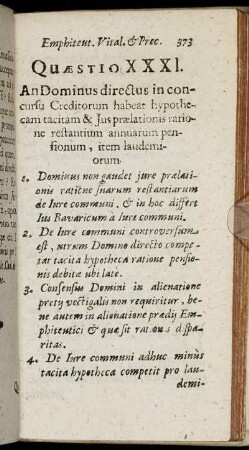 Emphiteut. Vital. & Prec. 373
QUÆSTIO XXXI.
An Dominus directus in con-
cursu Creditorum habeat hypothe-
cam tacitam & Jus prælationis ratio-
ne restantium annuarum pen-
sionum, item laudemi-
orum.
1. Dominus non gaudet jure prælati-
onis ratione suarum restantiarum
de Iure communi, & in hoc differt
Ius Bavaricum à Iure communi.
2. De Iure communi controversum
est, utrum Domino directo compe-
tat tacita hypotheca ratione pensio-
nis debitæ ubi late.
3. Consensus Domini in alienatione
prætij vectigalis non requiritur, be-
ne autem in alienatione prædij Em-
phiteutici & quæ sit rationis dispa-
ritas.
4. De Iure communi adhuc minùs
tacita hypotheca competit pro lau-
demi-